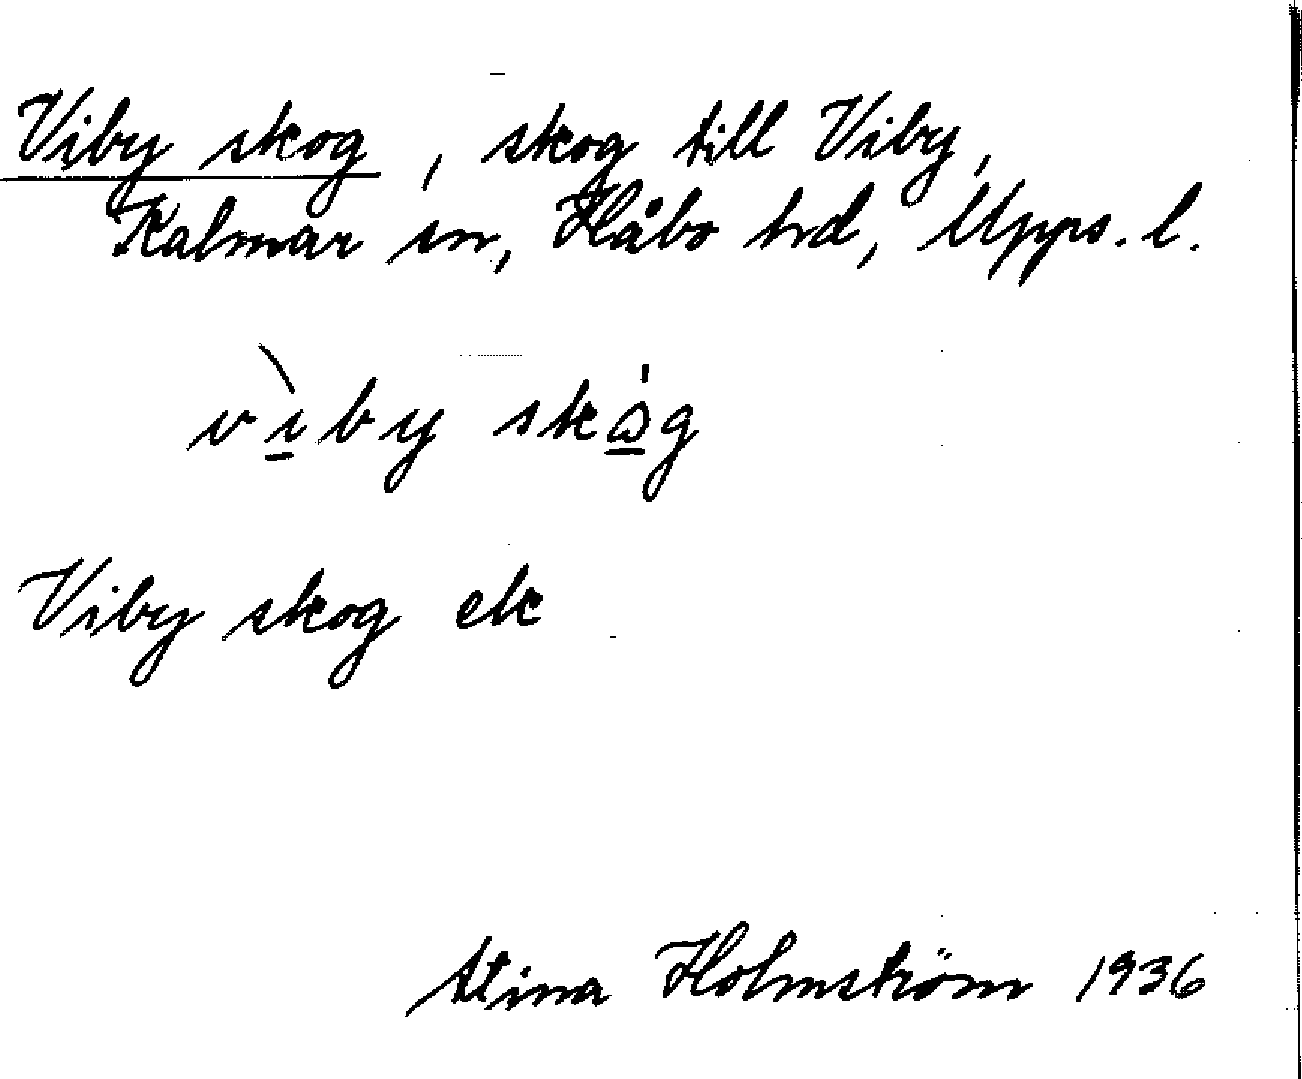 Viby skog, skog till Viby,
Kalmar sn, Håbo hd, Upps. l.
vìby skåg
Viby skog ek
Stina Holmström 1936